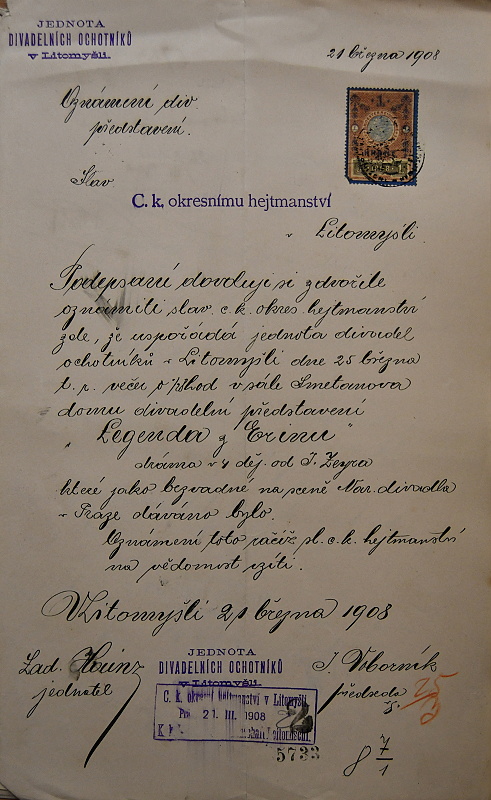 JEDNOTA
DIVADELNÍCH OCHOTNÍKŮ
v Litomyšli.
21 března 1908
Oznámení div.
představení.
1
Slav
C. k. okresnímu hejtmanství
v Litomyšli.
Podepsaní dovolují si zdvořile
oznámiti slav. c. k. okres. hejtmanství
zde, že uspořádá jednota divadel
ochotníků v Litomyšli dne 25 března
t. r. večer o hod v sále Smetanova
domu divadelní představení
„Legenda z Erinu"
dráma v 4 děj. od J. Zeyra
které jako bezvadné na scéně Nár. divadla
v Praze dáváno bylo.
Oznámení toto račiž sl. c. k. hejtmanství
na vědomost vzíti.
V Litomyšli 21 března 1908
JEDNOTA
DIVADELNÍCH OCHOTNÍKŮ
v Litomyšli.
Lad. Heinz
jednatel
J. Vborník
předseda
C. k. okresní hejtmanství v Litomyšli
21. III. 1908
2
5733
25/3
8 7/1